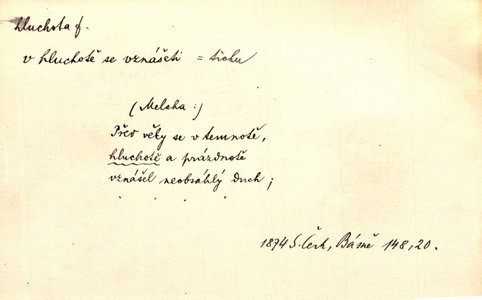 hluchota f.
v hluchotě se vznášeti = tichu
(Melcha :)
Přes věky se v temnotě,
hluchotě a prázdnotě
vznášel neobsáhlý duch;
. . . .
1874 S. Čech, Básně 148, 20.